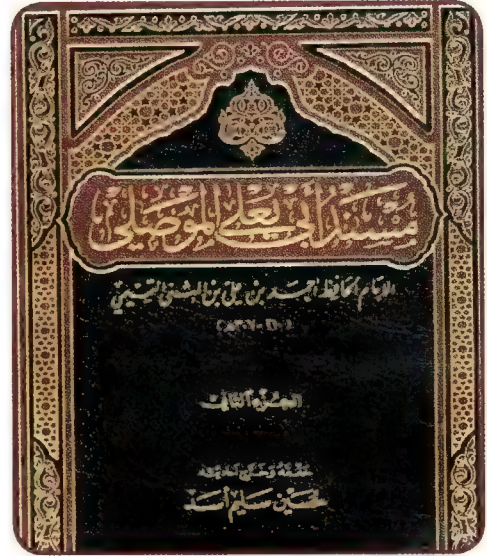 مسند أبي يعلى الموصلي
للإمام الحافظ أحمد بن علي بن المثنى التميمي
(٢١٠ - ٣٠٧هـ)
الجزء
حققه وخرج أحاديثه
حسين سليم أسد